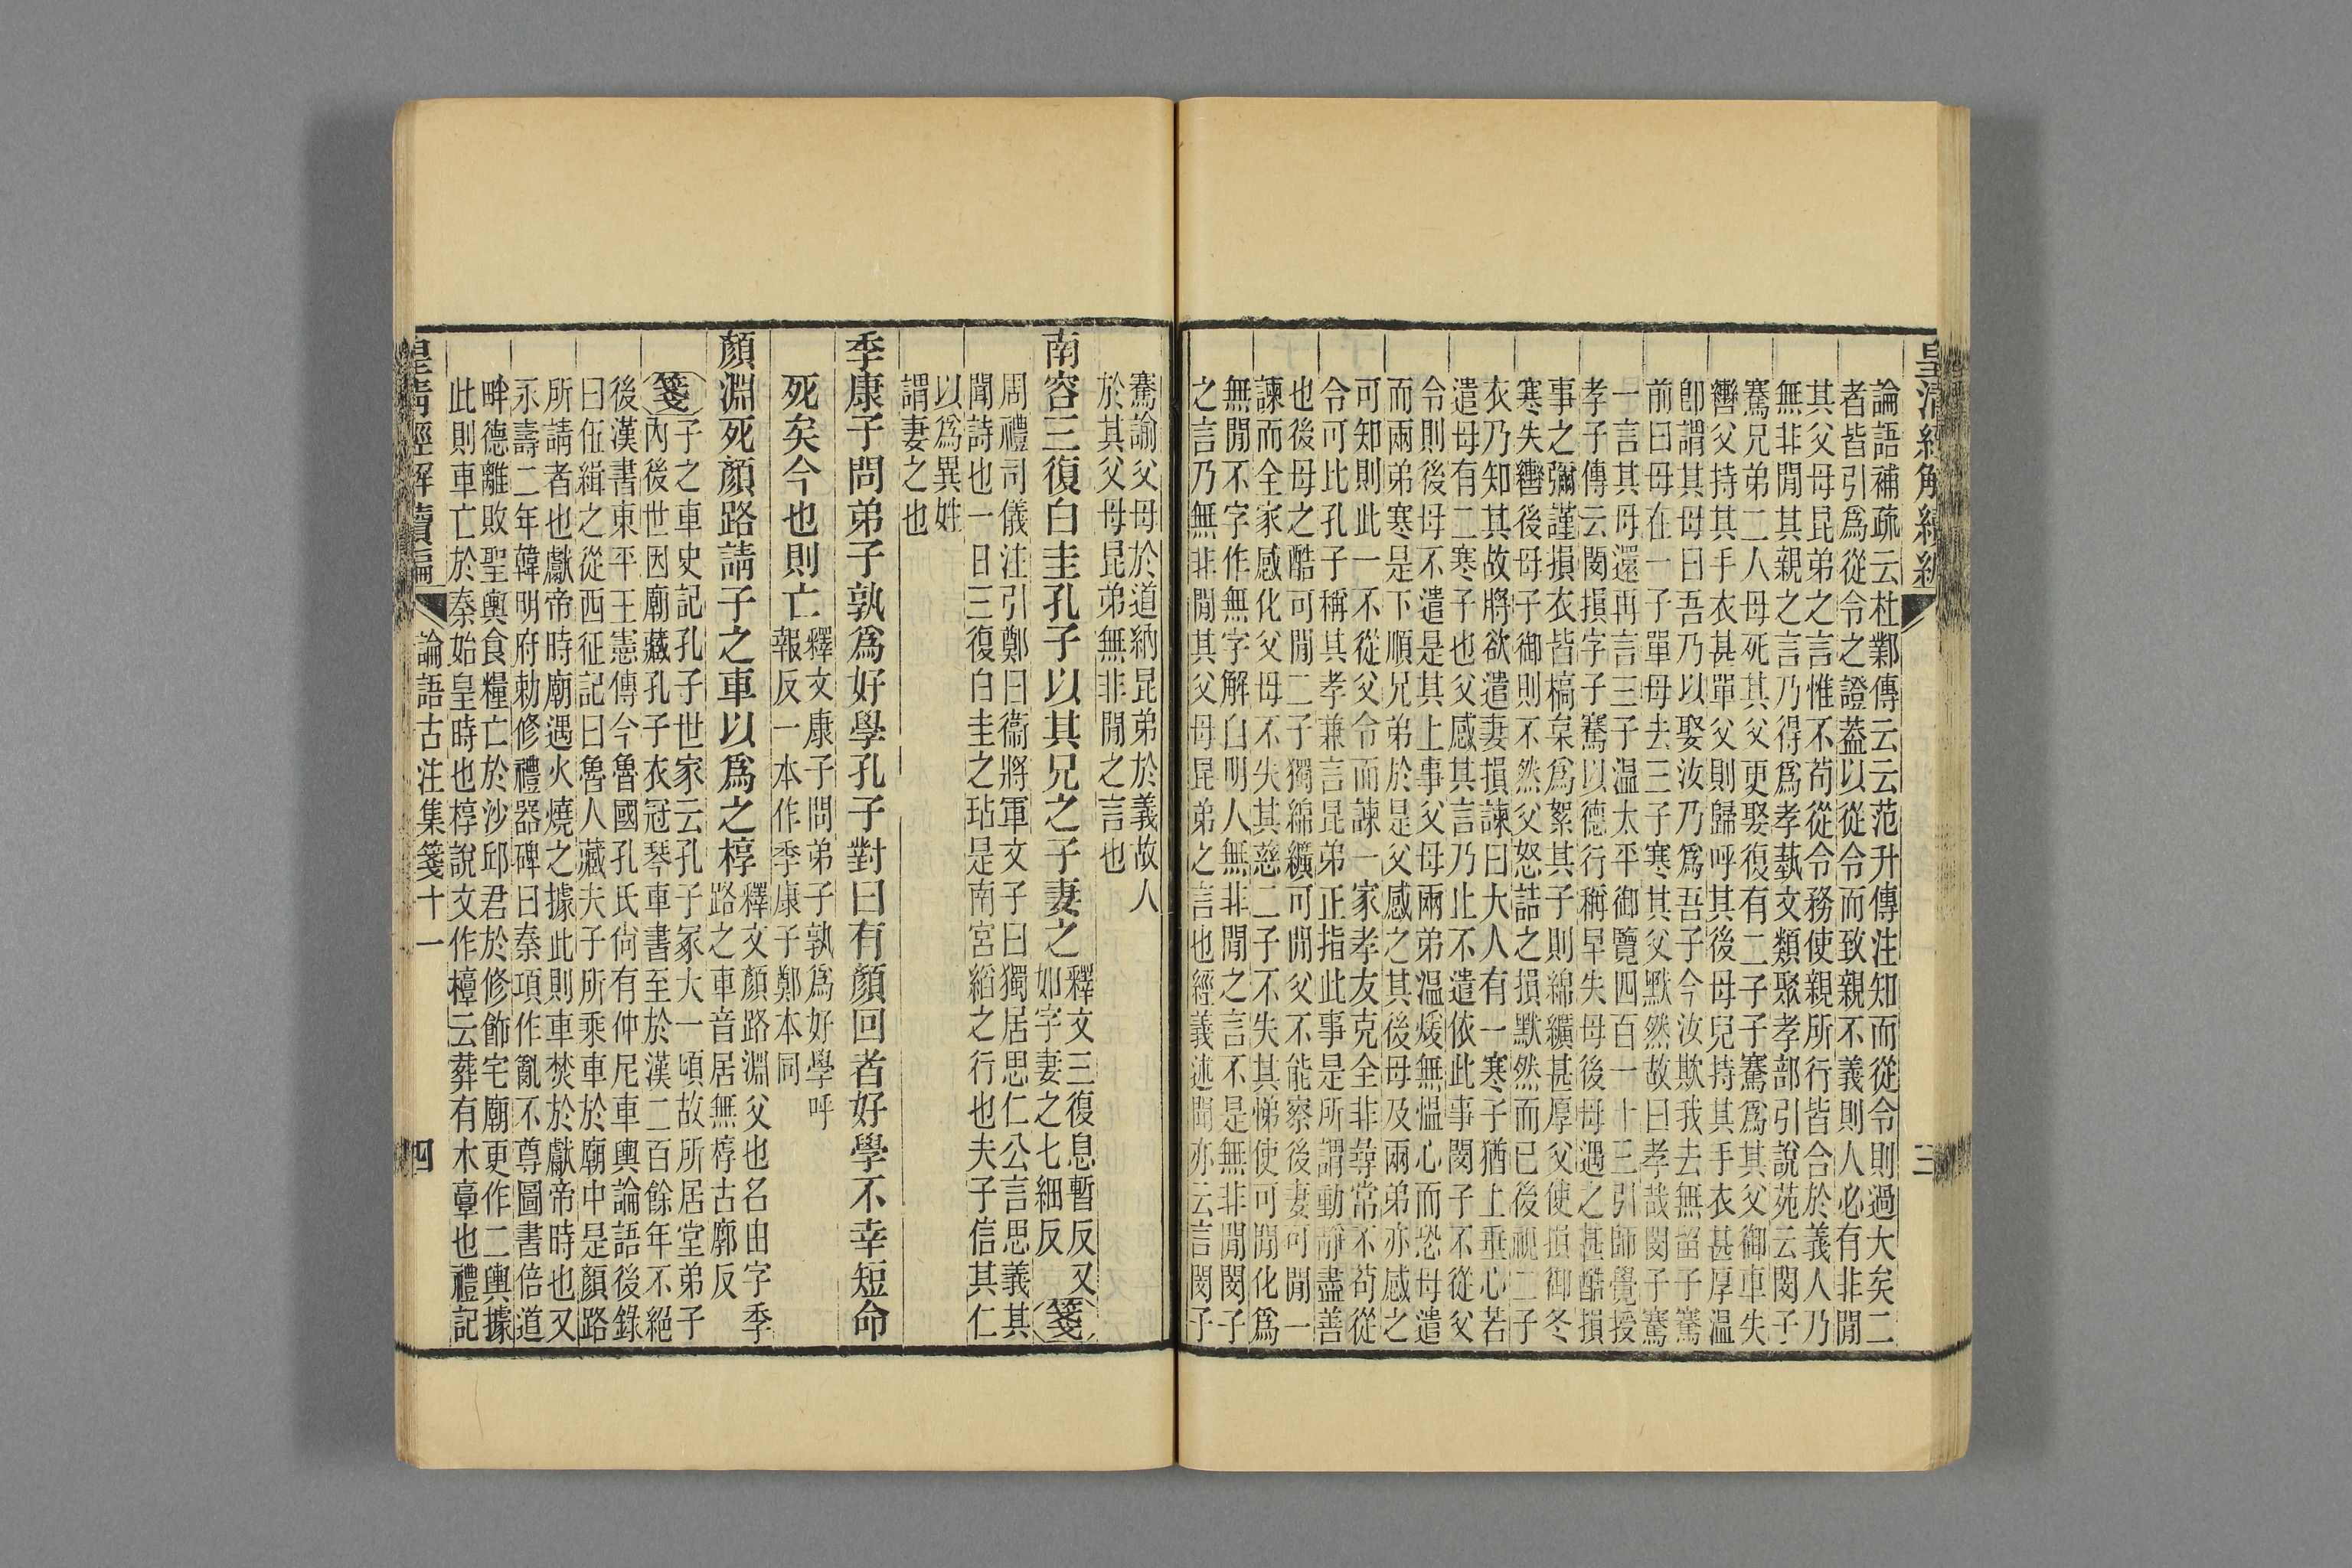 皇清經解續編
三
論語補疏云杜鄴傳云云范升傳注知而從令則過大矣二
者皆引爲從令之證蓋以從令而致親不義則人必有非閒
其父母昆弟之言惟不苟從令務使親所行皆合於義人乃
無非閒其親之言乃得爲孝藝文類聚孝部引說苑云閔子
騫兄弟二人母死其父更娶復有二子子騫爲其父御車失
轡父持其手衣甚單父則歸呼其後母兒持其手衣甚厚溫
卽謂其母曰吾乃以娶汝乃爲吾子今汝欺我去無留子騫
前曰母在一子單母去三子寒其父默然故曰孝哉閔子騫
一言其母還再言三子溫太平御覽四百一十三引師覺授
孝子傳云閔損字子騫以德行稱早失母後母遇之甚酷損
事之彌謹損衣皆槁枲爲絮其子則綿纊甚厚父使損御冬
寒失轡後母子御則不然父怒詰之損默然而已後視二子
衣乃知其故將欲遣妻損諫曰大人有一寒子猶上垂心若
遣母有二寒子也父感其言乃止不遣依此事閔子不從父
令則後母不遣是其上事父母兩弟溫煖無慍心而恐母遣
而兩弟寒是下順兄弟於是父感之其後母及兩弟亦感之
可知則此一不從父令而諫一家孝友克全非尋常不苟從
令可比孔子稱其孝兼言昆弟正指此事是所謂動靜盡善
也後母之酷可閒二子獨綿纊可閒父不能察後妻可閒一
諫而全家感化父母不失其慈二子不失其悌使可閒化爲
無閒不字作無字解白明人無非閒之言不是無非閒閔子
之言乃無非閒其父母昆弟之言也經義述聞亦云言閔子
騫諭父母於道納昆弟於義故人
於其父母昆弟無非閒之言也
南容三復白圭孔子以其兄之子妻之
釋文三復息暫反又
如字妻之七細反
箋
周禮司儀注引鄭曰衞將軍文子曰獨居思仁公言思義其
聞詩也一日三復白圭之玷是南宮縚之行也夫子信其仁
以爲異姓
謂妻之也
季康子問弟子孰爲好學孔子對曰有顏回者好學不幸短命
死矣今也則亡
釋文康子問弟子孰爲好學呼
報反一本作季康子鄭本同
顏淵死顏路請子之車以爲之椁
釋文顏路淵父也名由字季
路之車音居無椁古廓反
箋
子之車史記孔子世家云孔子冢大一頃故所居堂弟子
內後世因廟藏孔子衣冠琴車書至於漢二百餘年不絕
後漢書東平王憲傳今魯國孔氏尙有仲尼車輿論語後錄
曰伍緝之從西征記曰魯人藏夫子所乘車於廟中是顏路
所請者也獻帝時廟遇火燒之據此則車焚於獻帝時也又
永壽二年韓明府勅修禮器碑曰秦項作亂不尊圖書倍道
畔德離敗聖輿食糧亡於沙邱君於修飾宅廟更作二輿據
此則車亡於秦始皇時也椁說文作槨云葬有木𩫏也禮記
皇清經解續編
論語古注集箋十一
四